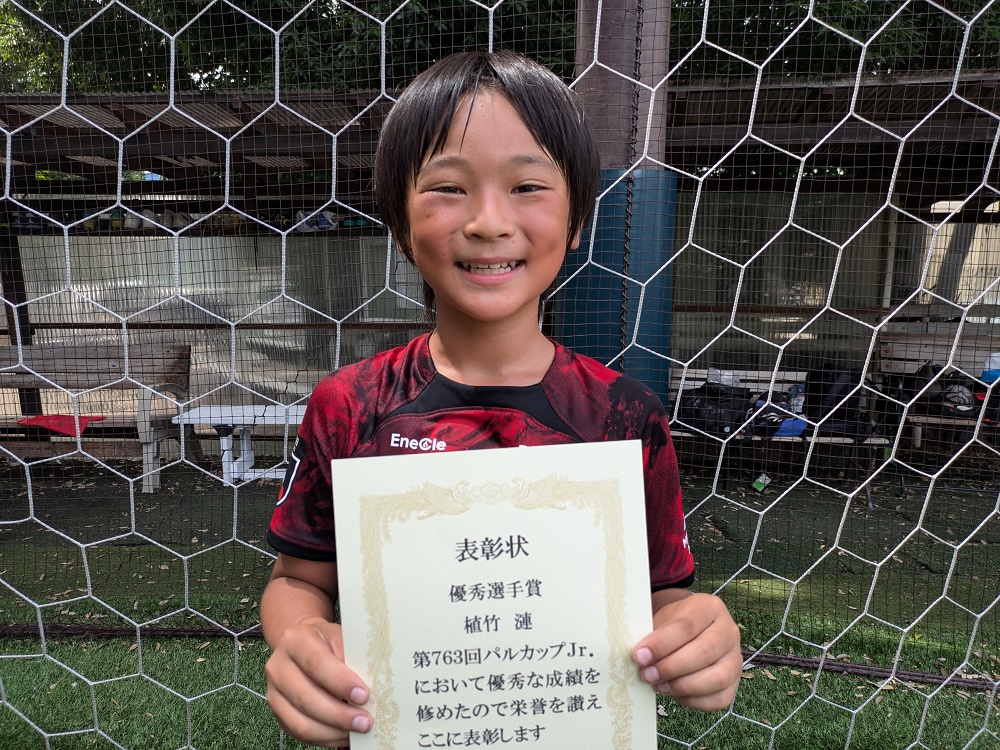 EneCle
表彰状
優秀選手賞
植竹 漣
第763回パルカップJr.
において優秀な成績を
修めたので栄誉を讃え
ここに表彰します